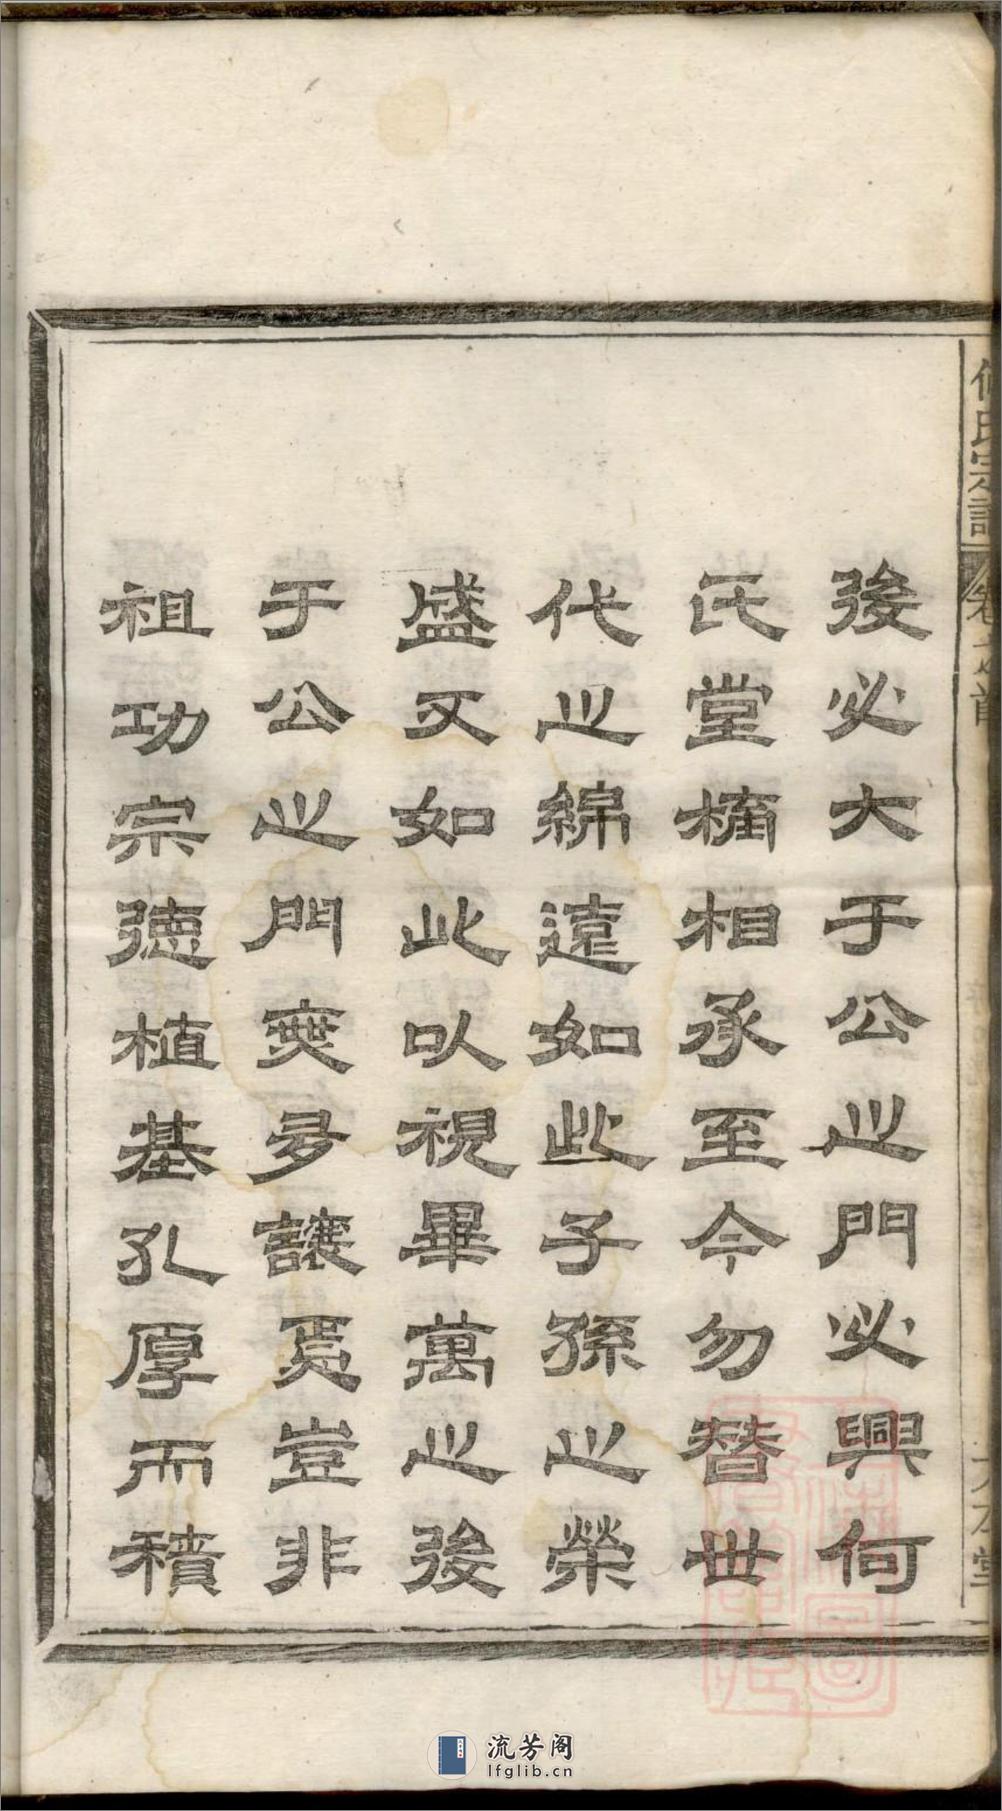 何氏宗譜
卷之首
後必大于公之門必興何
氏堂構相承至今勿替世
代之綿遠如此子孫之榮
盛又如此以視畢萬之後
于公之門奚多讓焉豈非
祖功宗德植基孔厚而積
流芳阁
lfglib.cn